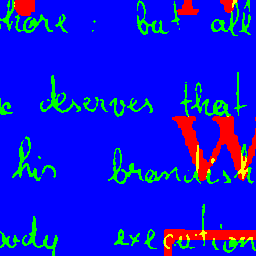 whore : but all
deserves that
his brandish
W
body execution